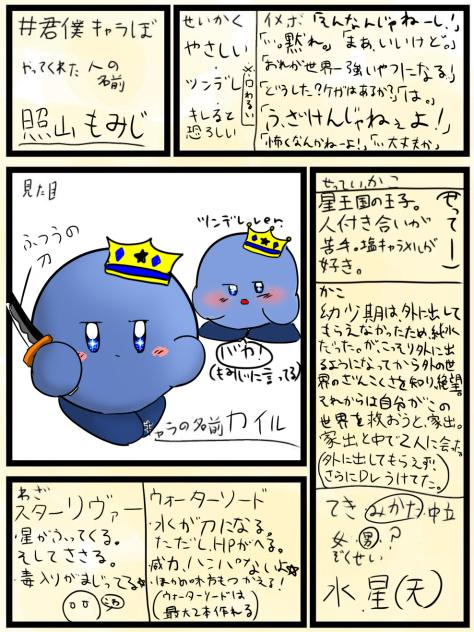 #君僕キャラぼ
やってくれた人の
名前
照山もみじ
せいかく
やさしい
・
ツンデレ
・
キレると
恐ろしい
※口わるい
イメボ「えんなんじゃねーし!」
「…黙れ。」「まあ、いいけど。」
「おれが世界一強いやつになる!」
「どうした?ケガはあるか?」「は。」
「ふざけんじゃねぇよ!」
「怖くなんかねーよ!」「…大丈夫か」
見た目
ふつうの
刀
ツンデレver
バカ!
(もみじに言ってる)
キャラの名前 カイル
せってい、かこ
(せってー)
星王国の王子。
人付き合いが
苦手。塩キャラメルが
好き。
かこ
幼少期は外出して
もらえなかったため、純水
だった。が、こっそり外に出
るようになってから外の世
界のざんこくさを知り、絶望。
それからは自分がこの
世界を救おうと、家出。
家出と中で2人に会った
(外に出してもらえず
さらにDVうけてた。)
てき みかた 中立
女 男 ?
ぞくせい
水、星(天)
わざ
スターリヴァー
・星がふってくる。
そしてささる。
毒入りがまじってる☆
こわ
ウォーターソード
・水が刀になる。
ただし、HPがへる。
威力、ハンパないよ☆
・ほかの味方もつかえる!
(ウォーターソードは
最大2本作れる)